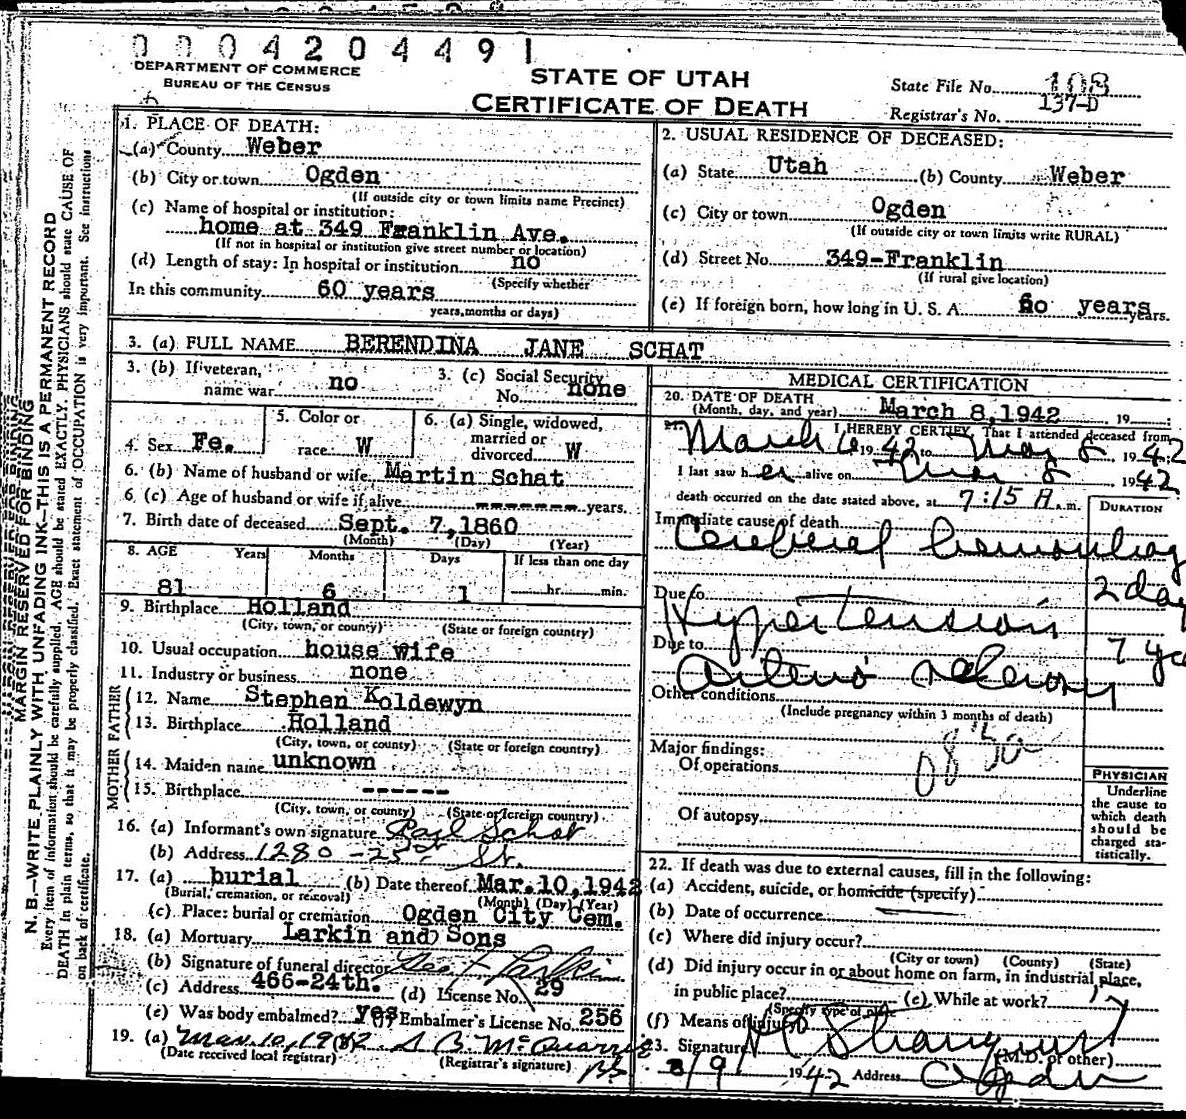 0004204491
DEPARTMENT OF COMMERCE
BUREAU OF THE CENSUS
STATE OF UTAH
CERTIFICATE OF DEATH
State File No. 108
137-D
Registrar's No.
1. PLACE OF DEATH:
(a) County Weber
(b) City or town Ogden
(If outside city or town limits name Precinct)
(c) Name of hospital or institution:
home at 349 Franklin Ave.
(If not in hospital or institution give street number or location)
(d) Length of stay: In hospital or institution no
(Specify whether
In this community 60 years
years, months or days)
2. USUAL RESIDENCE OF DECEASED:
(a) State Utah (b) County Weber
(c) City or town Ogden
(If outside city or town limits write RURAL)
(d) Street No. 349-Franklin
(If rural give location)
(e) If foreign born, how long in U. S. A. 60 years years.
3. (a) FULL NAME BERENDINA JANE SCHAT
3. (b) If veteran, name war no
3. (c) Social Security No. none
4. Sex Fe.
5. Color or race W
6. (a) Single, widowed, married or divorced W
6. (b) Name of husband or wife Martin Schat
6. (c) Age of husband or wife if alive ------- years.
7. Birth date of deceased Sept. 7, 1860
(Month) (Day) (Year)
8. AGE Years Months Days If less than one day
81 6 1 hr. min.
9. Birthplace Holland
(City, town, or county) (State or foreign country)
10. Usual occupation house wife
11. Industry or business none
FATHER
12. Name Stephen Koldewyn
13. Birthplace Holland
(City, town, or county) (State or foreign country)
MOTHER
14. Maiden name unknown
15. Birthplace ------
(City, town, or county) (State or foreign country)
16. (a) Informant's own signature Paul Schat
(b) Address 1280 - 25th St.
17. (a) burial (b) Date thereof Mar. 10, 1942
(Burial, cremation, or removal) (Month) (Day) (Year)
(c) Place: burial or cremation Ogden City Cem.
18. (a) Mortuary Larkin and Sons
(b) Signature of funeral director Larkin
(c) Address 466-24th. (d) License No. 29
(e) Was body embalmed? yes (f) Embalmer's License No. 256
19. (a) Mar. 10, 1942 McQuarrie
(Date received local registrar) (Registrar's signature)
MEDICAL CERTIFICATION
20. DATE OF DEATH
(Month, day, and year) March 8, 1942 19
I HEREBY CERTIFY, That I attended deceased from
March 6 1942 to Mar 8 1942
I last saw her alive on Mar 8 1942
death occurred on the date stated above, at 7:15 A a.m.
DURATION
Immediate cause of death
Cerebral hemorrhag
2 day
Due to
Hypertension
7 y
Due to
Arterio
Other conditions
(Include pregnancy within 3 months of death)
Major findings:
Of operations
Of autopsy
PHYSICIAN
Underline the cause to which death should be charged statistically.
22. If death was due to external causes, fill in the following:
(a) Accident, suicide, or homicide (specify)
(b) Date of occurrence
(c) Where did injury occur?
(City or town) (County) (State)
(d) Did injury occur in or about home on farm, in industrial place,
in public place? (e) While at work?
(Specify type of place)
(f) Means of injury
23. Signature
(M.D. or other)
3/9 1942 Address Ogden
MARGIN RESERVED FOR BINDING
N. B.—WRITE PLAINLY WITH UNFADING INK—THIS IS A PERMANENT RECORD
Every item of information should be carefully supplied. AGE should be stated EXACTLY. PHYSICIANS should state CAUSE OF
DEATH in plain terms, so that it may be properly classified. Exact statement of OCCUPATION is very important. See instructions
on back of certificate.